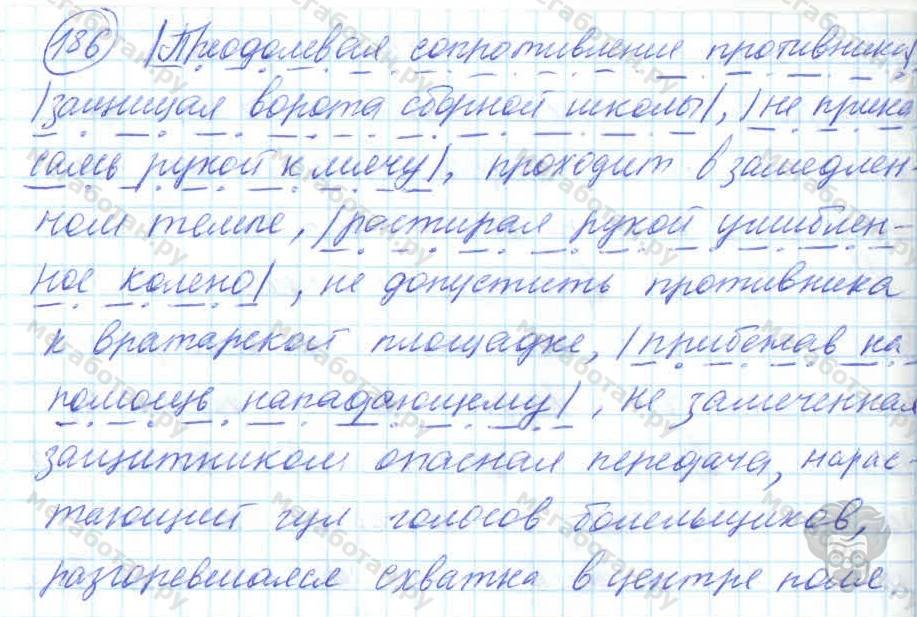 186 |Преодолевая сопротивление противника|,
|защищая ворота сборной школы|, |не прика
саясь рукой к мячу|, проходит в замедлен-
ном темпе, |растирая рукой ушиблен-
ное колено|, не допустить противника
к вратарской площадке, |прибежав на
помощь нападающему|, не замеченная
защитником опасная передача, нарас-
тающий гул голосов болельщиков,
разгоревшаяся схватка в центре поля.
мегаботан.ру